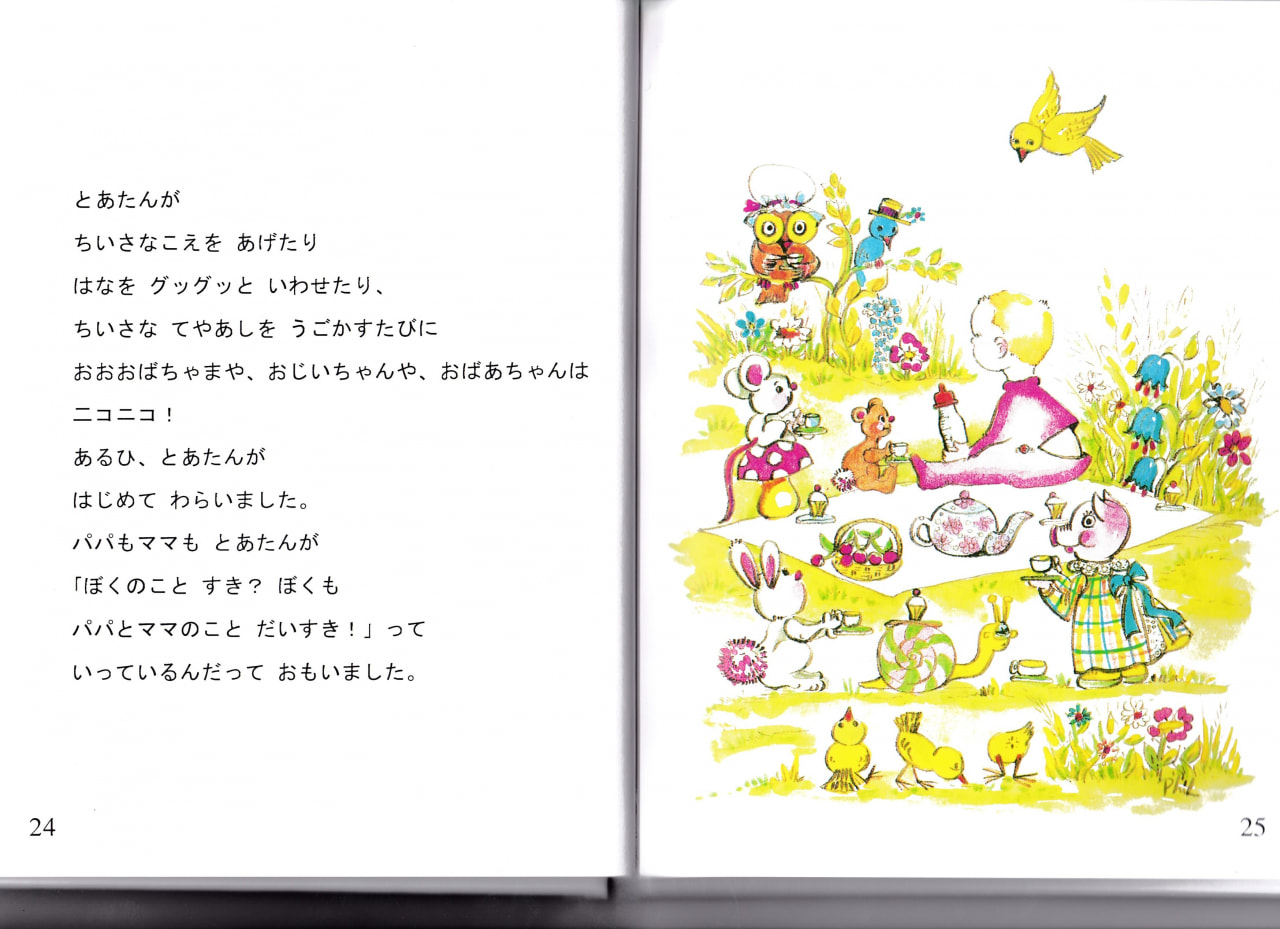 とあたんが
ちいさなこえを あげたり
はなを グッグッと いわせたり、
ちいさな てやあしを うごかすたびに
おおおばちゃまや、おじいちゃんや、おばあちゃんは
ニコニコ！
あるひ、とあたんが
はじめて わらいました。
パパもママも とあたんが
「ぼくのこと すき？ ぼくも
パパとママのこと だいすき！」って
いっているんだって おもいました。
24
Phil
25